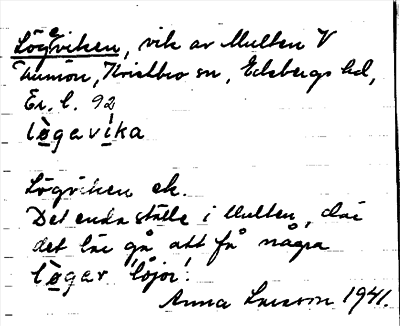 Lögeviken, vik av Multen V
Aumön, Kvistbro sn, Edsbergs hd,
Er. l. 92
lø̀gavìka
Lögviken ek.
Det enda ställe i Multen, där
det lär gå att få några
lø̀gar 'löjor'.
Anna Larsson 1941.